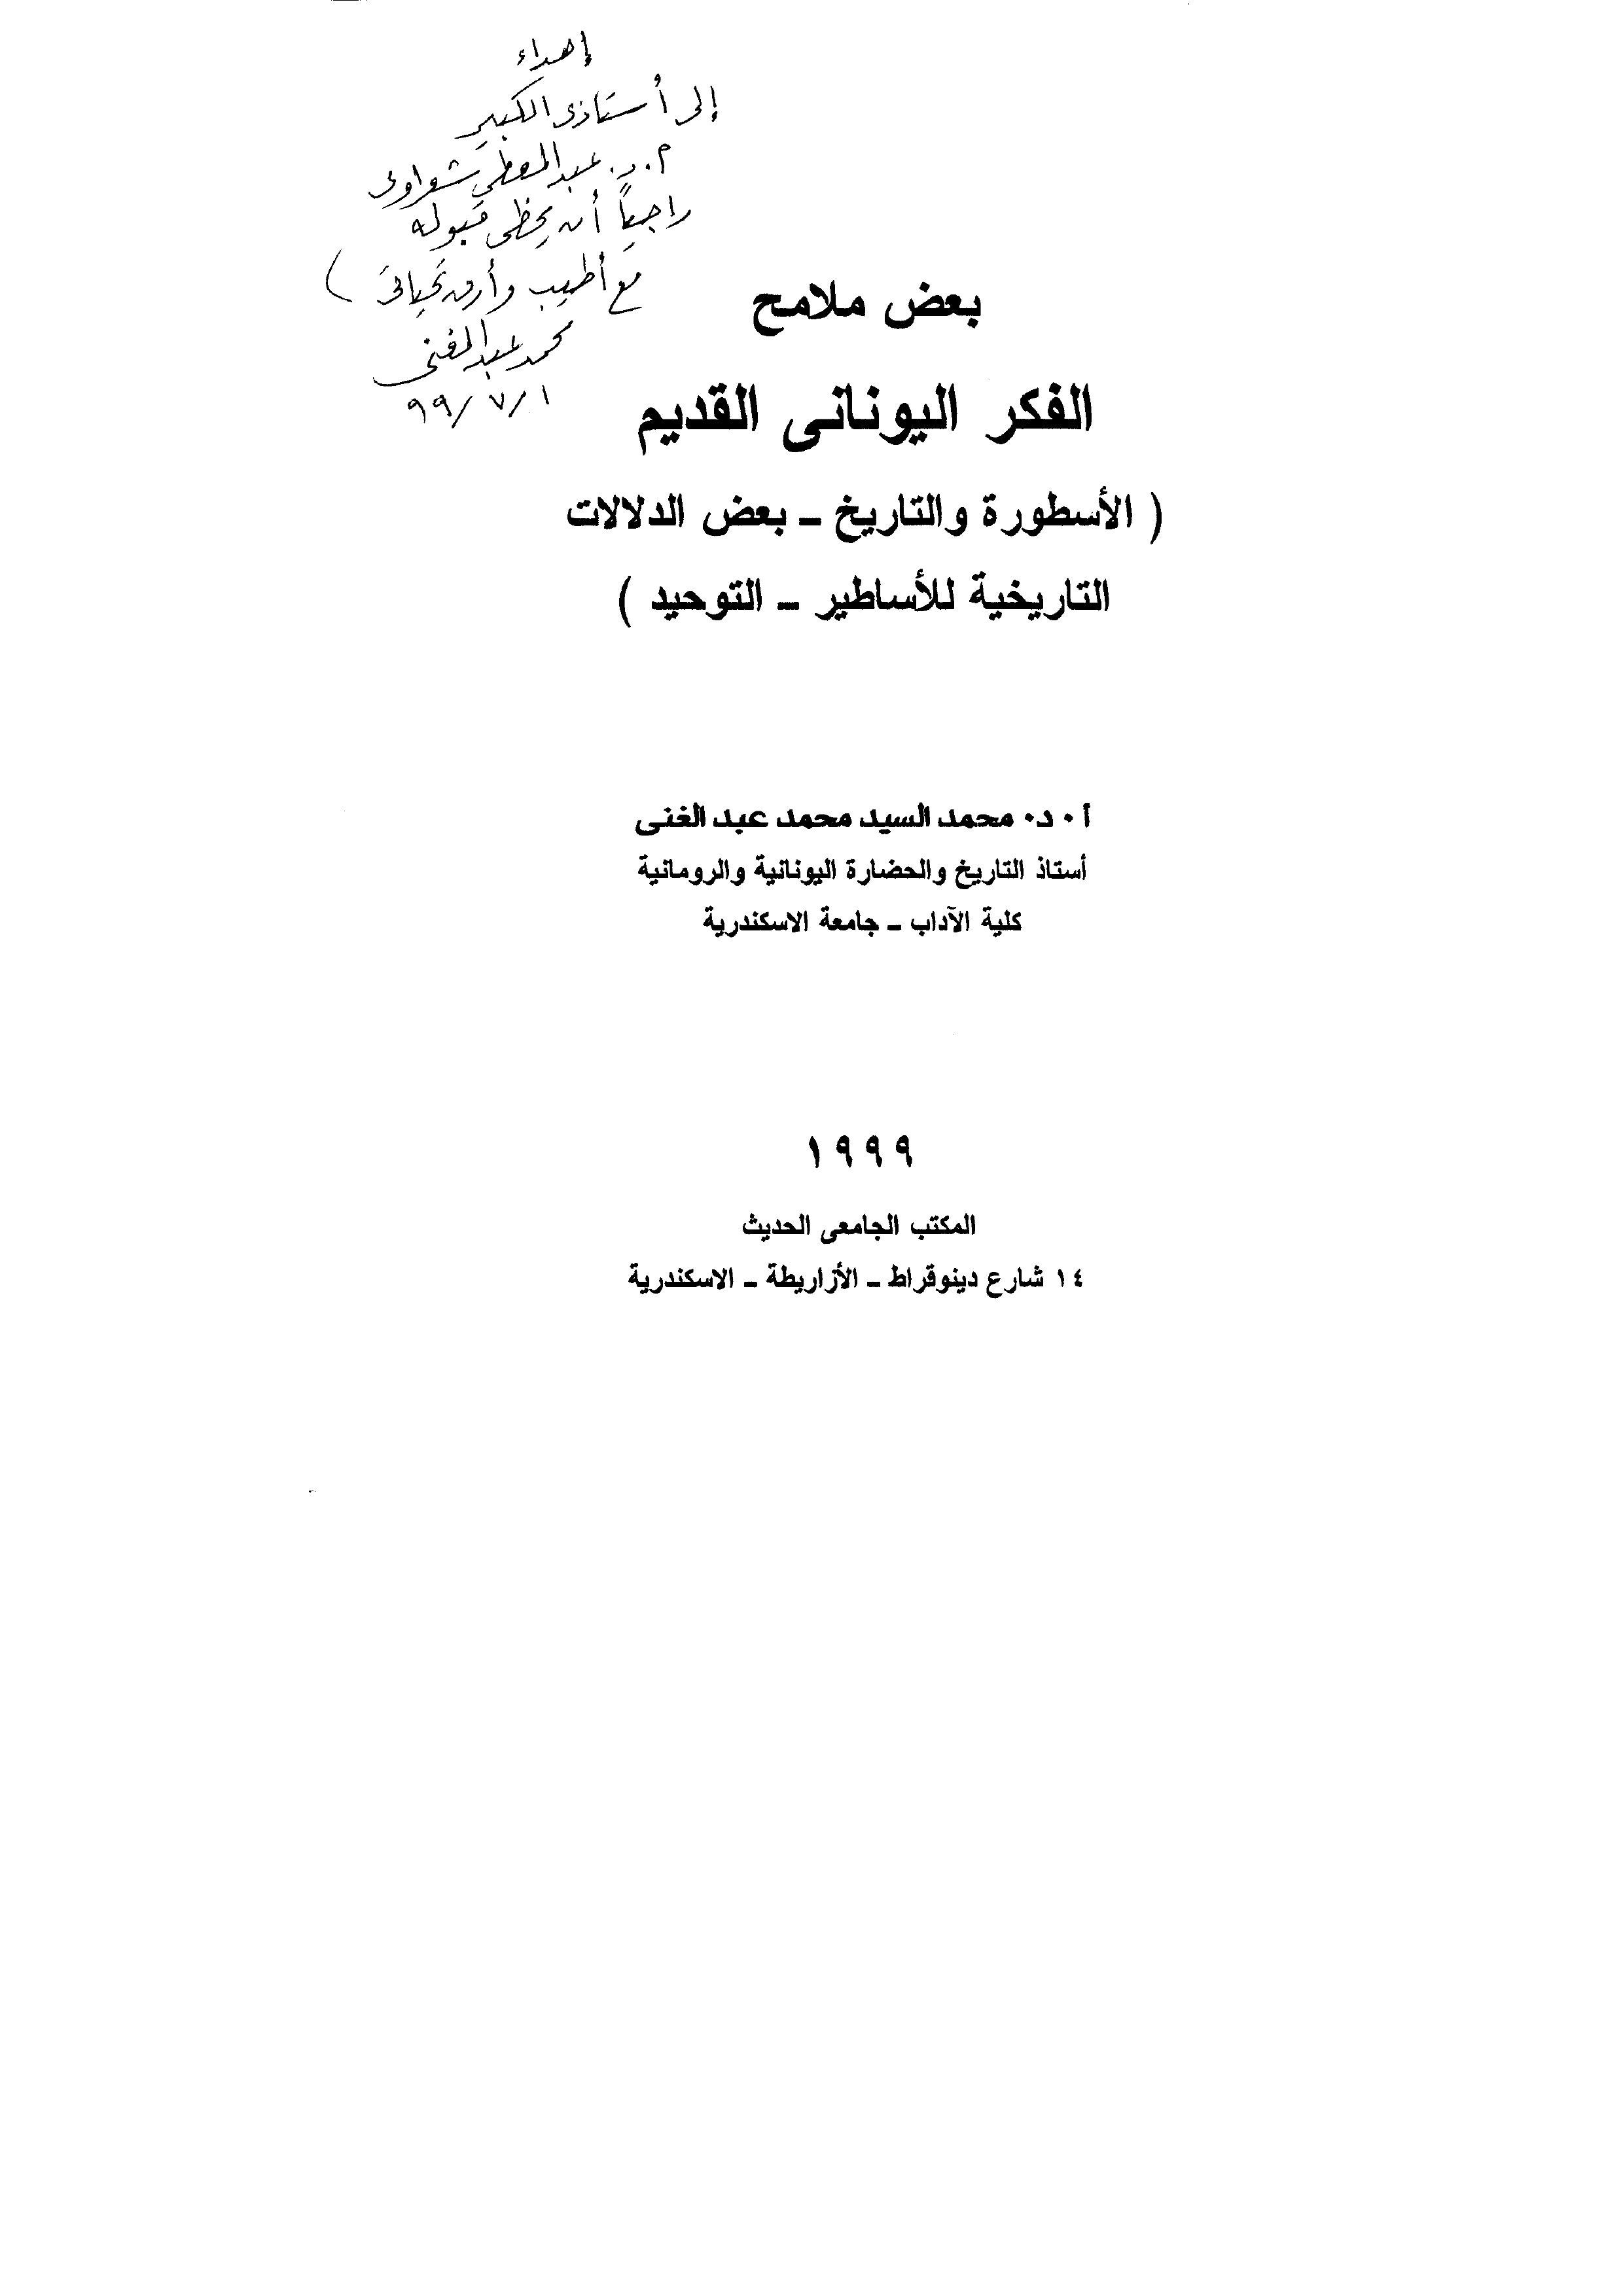 إهداء
إلى أستاذى الكبير
أ.د. عبد المعطى شعراوى
راجياً أن يحظى قبوله
مع أطيب وأرق تحياتى
محمد عبد الغنى
١/٧/٩٩
بعض ملامح
الفكر اليونانى القديم
( الأسطورة والتاريخ ــ بعض الدلالات
التاريخية للأساطير ــ التوحيد )
أ٠د٠ محمد السيد محمد عبد الغنى
أستاذ التاريخ والحضارة اليونانية والرومانية
كلية الآداب ــ جامعة الاسكندرية
١٩٩٩
المكتب الجامعى الحديث
١٤ شارع دينوقراط ــ الأزاريطة ــ الاسكندرية